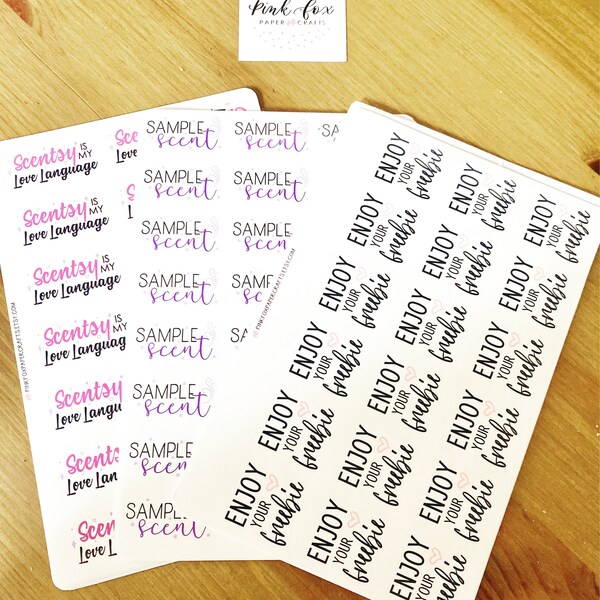 Pink Fox
PAPER CRAFTS
Scentsy IS
MY
Love Language
Scentsy IS
MY
Love Language
Scentsy IS
MY
Love Language
Scentsy IS
MY
Love Language
Scentsy
Love Langu
Scents
Love Langu
Scents
Love Lang
PINKFOXPAPERCRAFTS.ETSY.COM
SAMPLE
scent
SAMPLE
scent
SAMPLE
scent
SAMPLE
scent
SAMPLE
scent
SAMPLE
scent
SAMPLE
scent
SAMPLE
scent
SAMPLE
scent
SAMPLE
scent
SAMPLE
scen
SAMPLE
PINKFOXPAPERCRAFTS.ETSY.COM
ENJOY
YOUR
freebie
ENJOY
YOUR
freebie
ENJOY
YOUR
freebie
ENJOY
YOUR
freebie
ENJOY
YOUR
freebie
ENJOY
YOUR
freebie
ENJOY
YOUR
freebie
ENJOY
YOUR
freebie
ENJOY
YOUR
freebie
ENJOY
YOUR
freebie
ENJOY
YOUR
freebie
ENJOY
YOUR
freebie
ENJOY
YOUR
freebie
ENJOY
YOUR
freebie
ENJOY
YOUR
freebie
ENJOY
YOUR
freebie
ENJOY
YOUR
freebie
ENJOY
YOUR
freebie